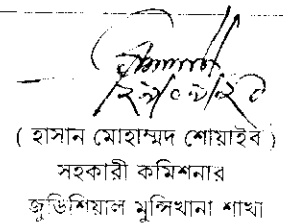 ২৯/০৯/২০
( হাসান মোহাম্মদ শোয়াইব )
সহকারী কমিশনার
জুডিশিয়াল মুন্সিখানা শাখা